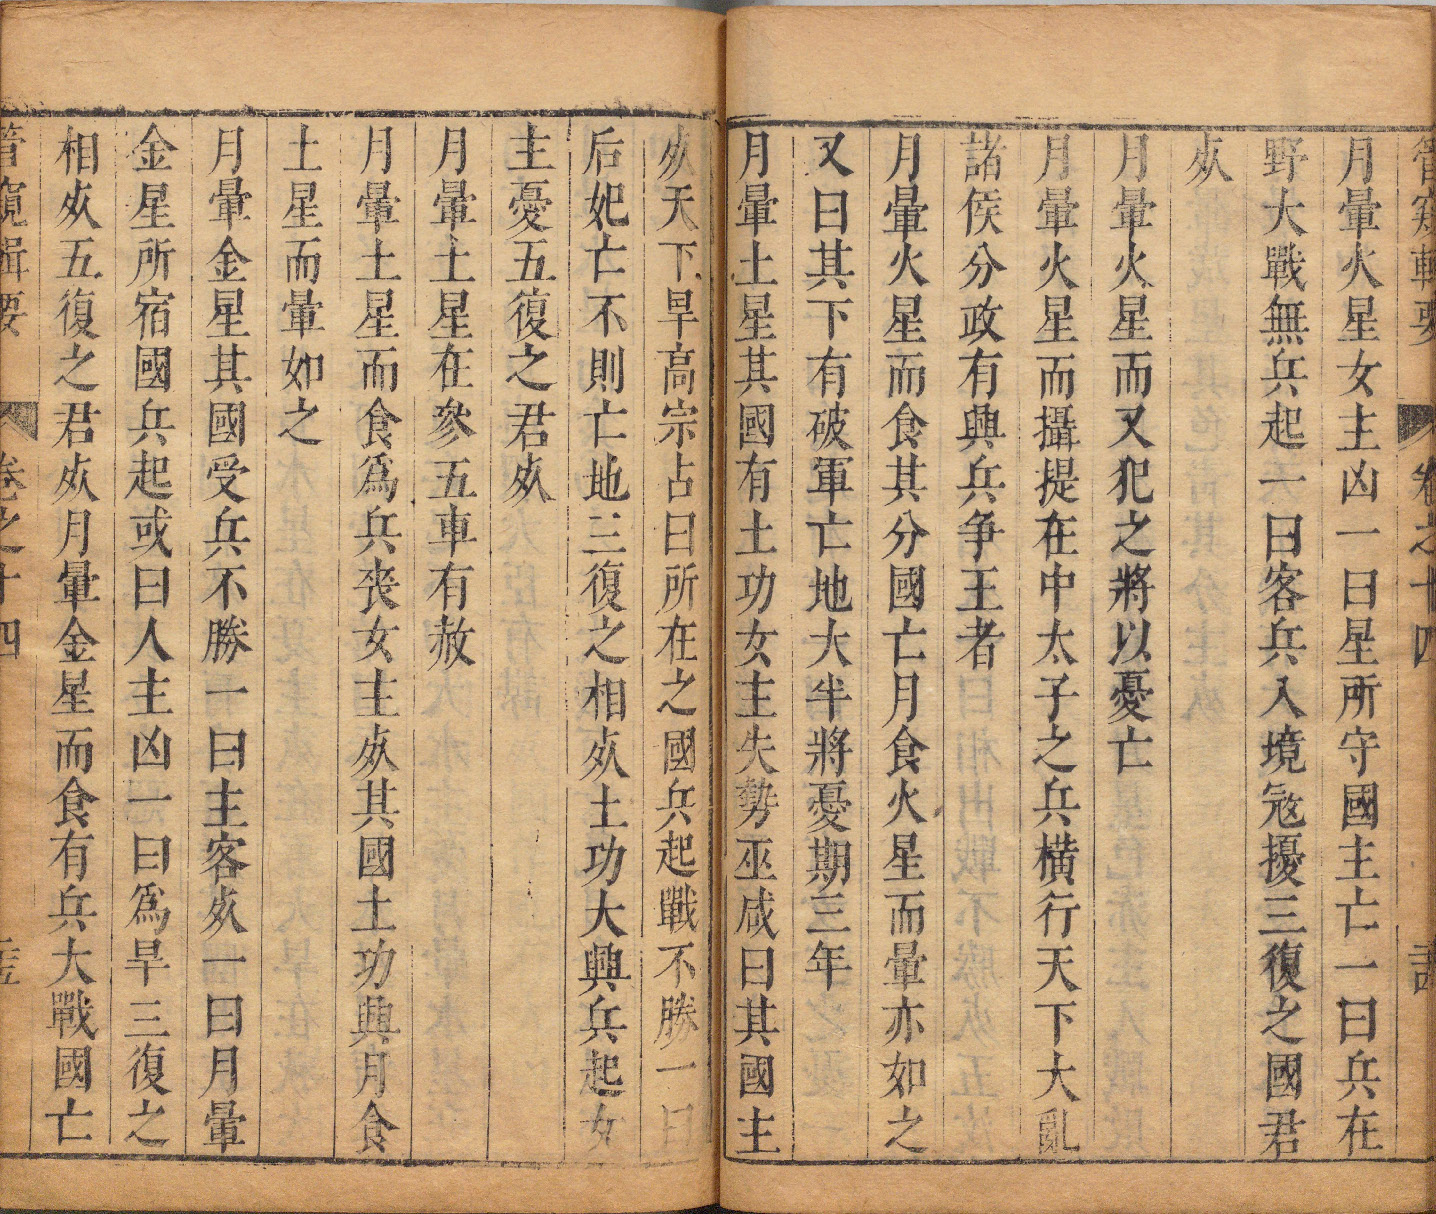 管窺輯要 卷之十四
月暈火星女主凶一曰星所守國主亡一曰兵在
野大戰無兵起一曰客兵入境宼擾三復之國君
㱙
月暈火星而又犯之將以憂亡
月暈火星而攝提在中太子之兵橫行天下大亂
諸侯分政有興兵爭王者
月暈火星而食其分國亡月食火星而暈亦如之
又曰其下有破軍亡地大半將憂期三年
月暈土星其國有土功女主失勢巫咸曰其國主
㱙天下旱高宗占曰所在之國兵起戰不勝一曰
后妃亡不則亡地三復之相㱙土功大興兵起女
主憂五復之君㱙
月暈土星在參五車有赦
月暈土星而食爲兵丧女主㱙其國土功興月食
土星而暈如之
月暈金星其國受兵不勝一曰主客㱙一曰月暈
金星所宿國兵起或曰人主凶一曰爲旱三復之
相㱙五復之君㱙月暈金星而食有兵大戰國亡
管窺輯要 卷之十四